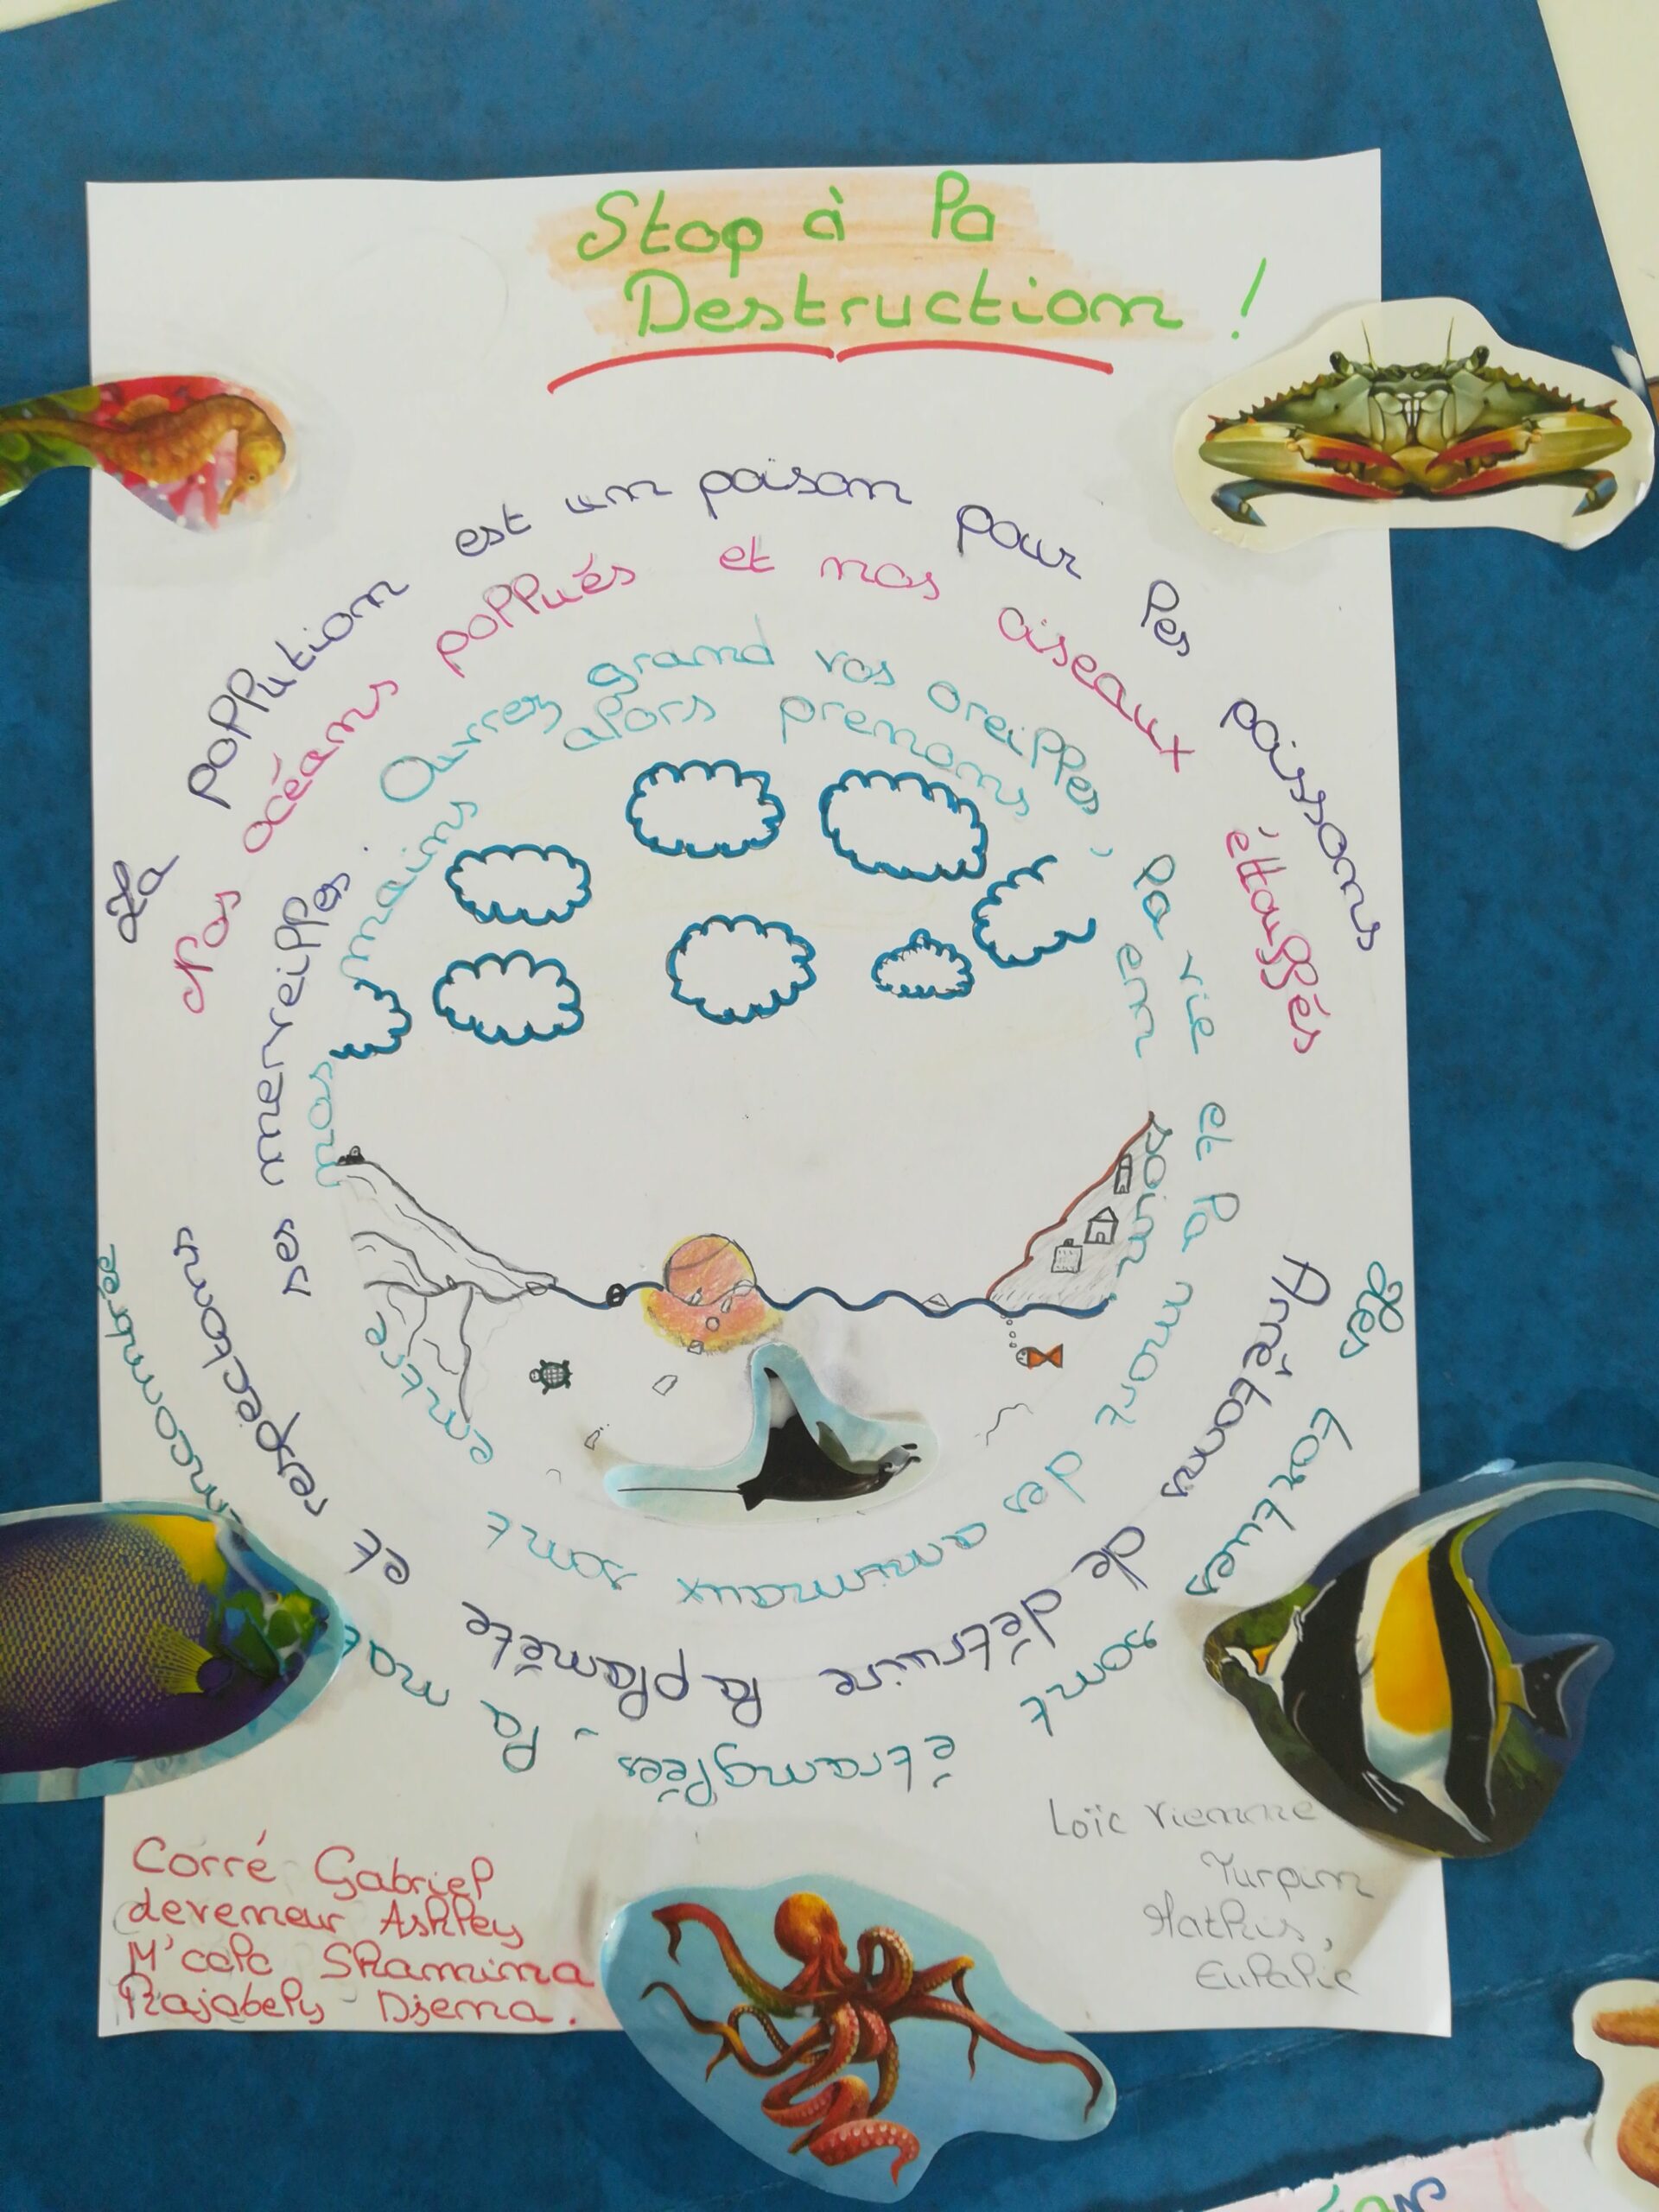 Stop à la
Destruction !
La pollution est un poison pour les poissons
Les tortues sont étranglées, la
Nos océans pollués et nos oiseaux éttouffés
Arrêtons de détruire la planète et respectons ses merveilles.
Ouvrez grand vos oreilles, la vie et la mort des animaux sont entre nos mains alors prenons en soin.
Loïc Vienne
Turpin
Mathis,
Eulalie
Corré Gabriel
deveneur Ashley
M'colo Shamima
Rajabely Djema.